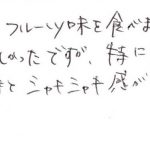 フルーツ味を食べま
かったですが、特に
と シャキシャキ感が